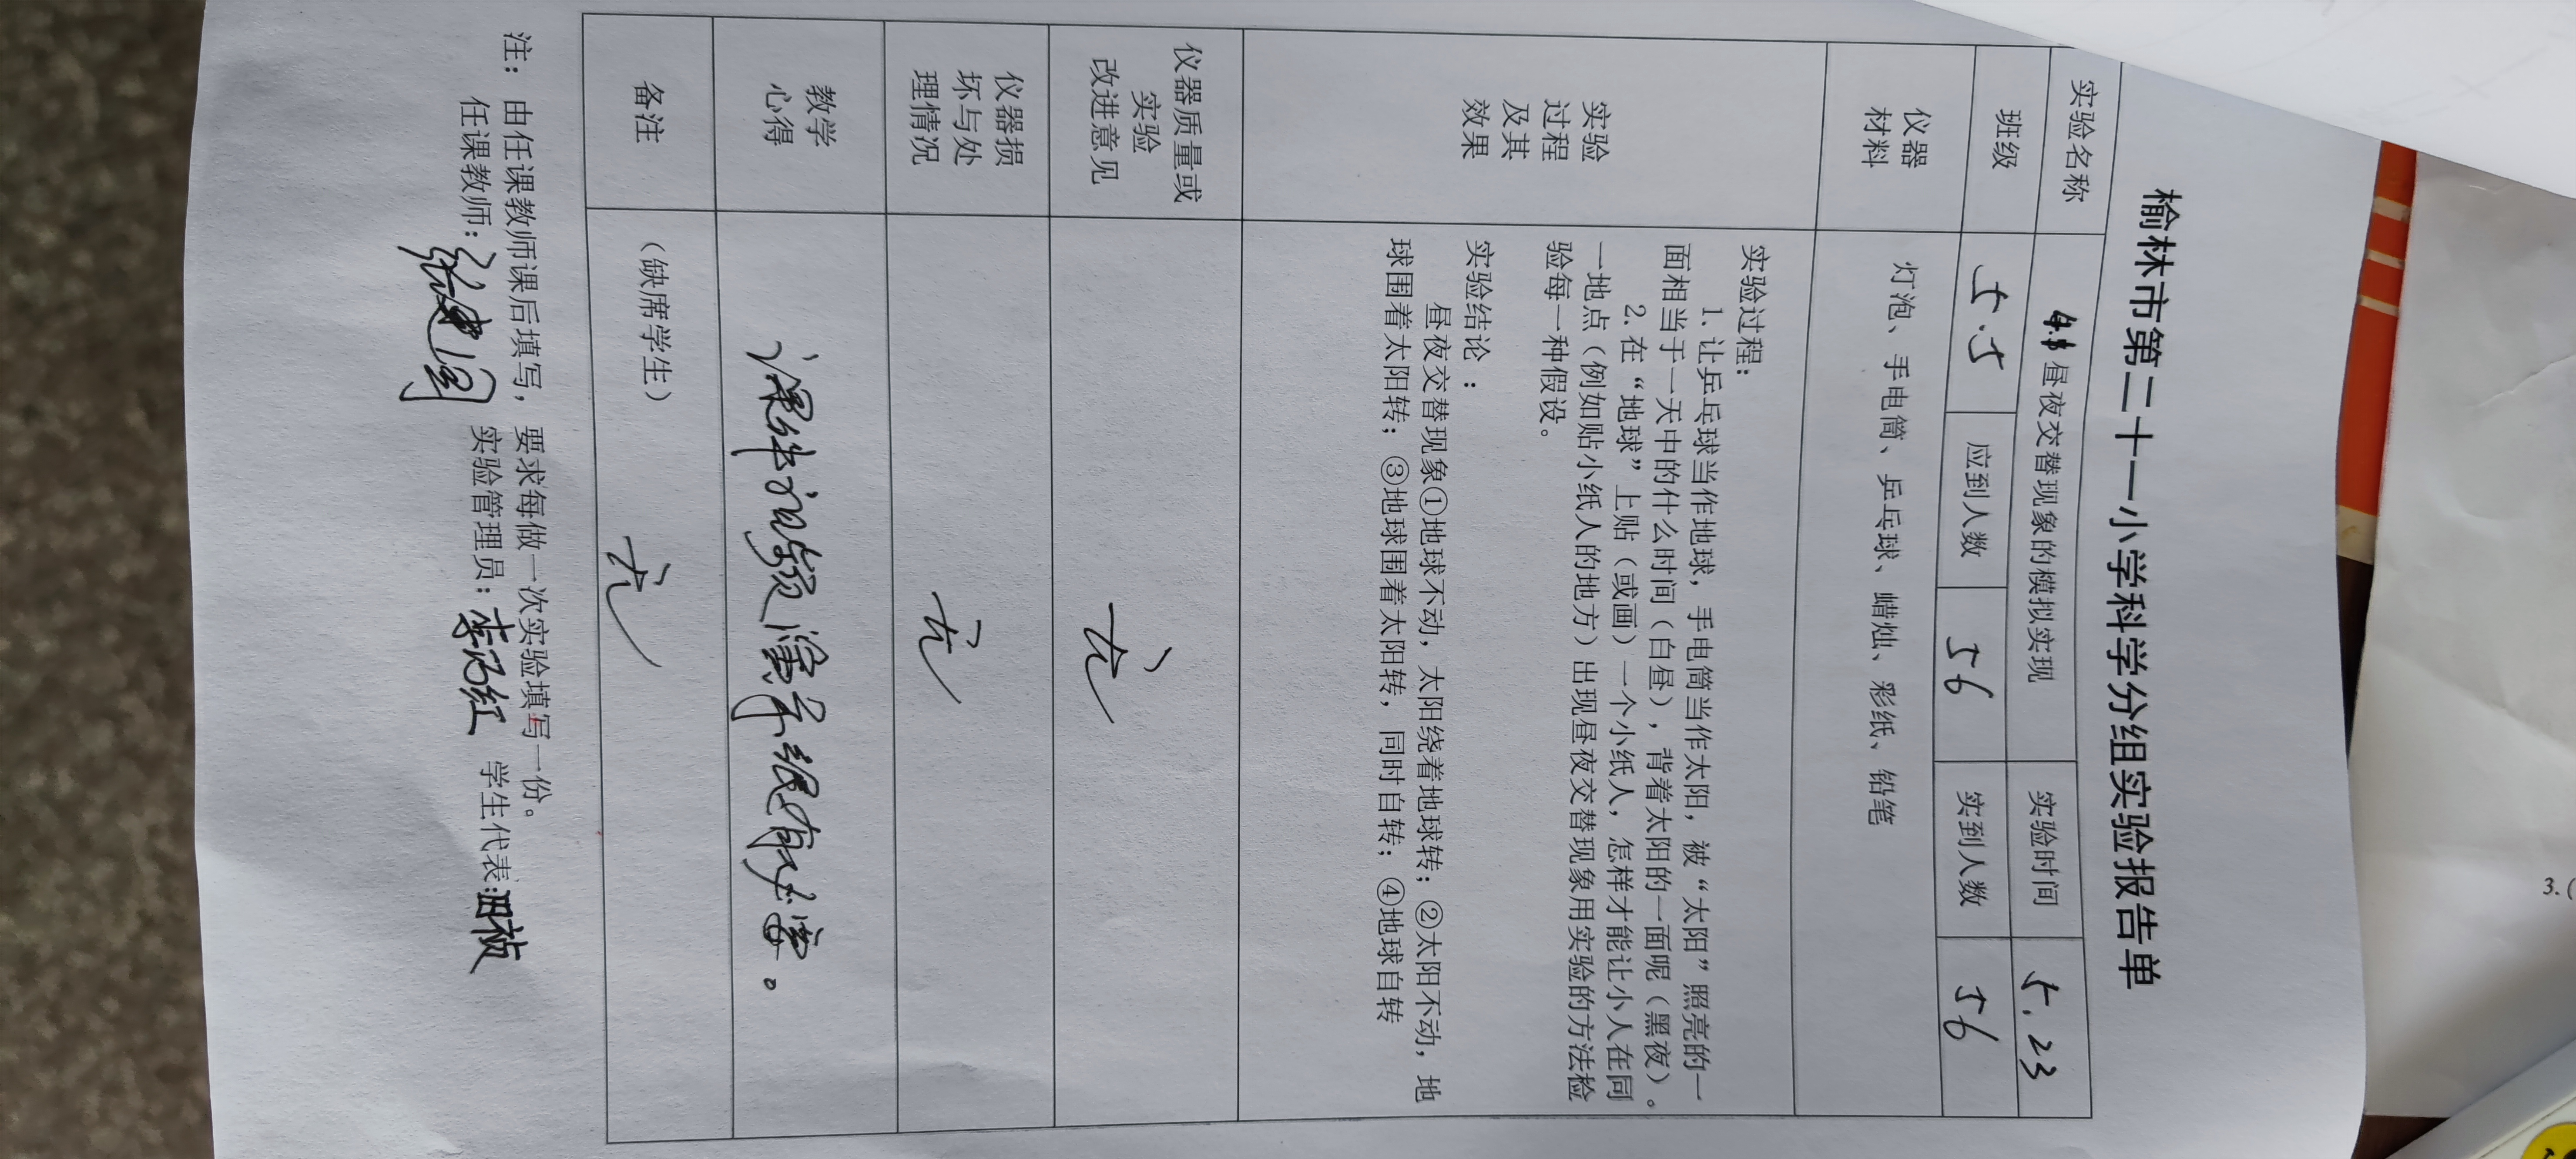 榆林市第二十一小学科学分组实验报告单
实验名称
昼夜交替现象的模拟实现
实验时间
5.23
班级
5.5
应到人数
56
实到人数
56
仪器
材料
灯泡、手电筒、乒乓球、蜡烛、彩纸、铅笔
实验
过程
及其
效果
实验过程:
1. 让乒乓球当作地球,手电筒当作太阳,被“太阳”照亮的一
面相当于一天中的什么时间(白昼),背着太阳的一面呢(黑夜)。
2. 在“地球”上贴(或画)一个小纸人,怎样才能让小人在同
一地点(例如贴小纸人的地方)出现昼夜交替现象用实验的方法检
验每一种假设。
实验结论:
昼夜交替现象①地球不动,太阳绕着地球转;②太阳不动,地
球围着太阳转;③地球围着太阳转,同时自转;④地球自转
仪器质量或
实验
改进意见
无
仪器损
坏与处
理情况
无
教学
心得
课件视频演示很有必要。
备注
(缺席学生)
无
注: 由任课教师课后填写,要求每做一次实验填写一份。
任课教师: 实验管理员: 学生代表:
3.(